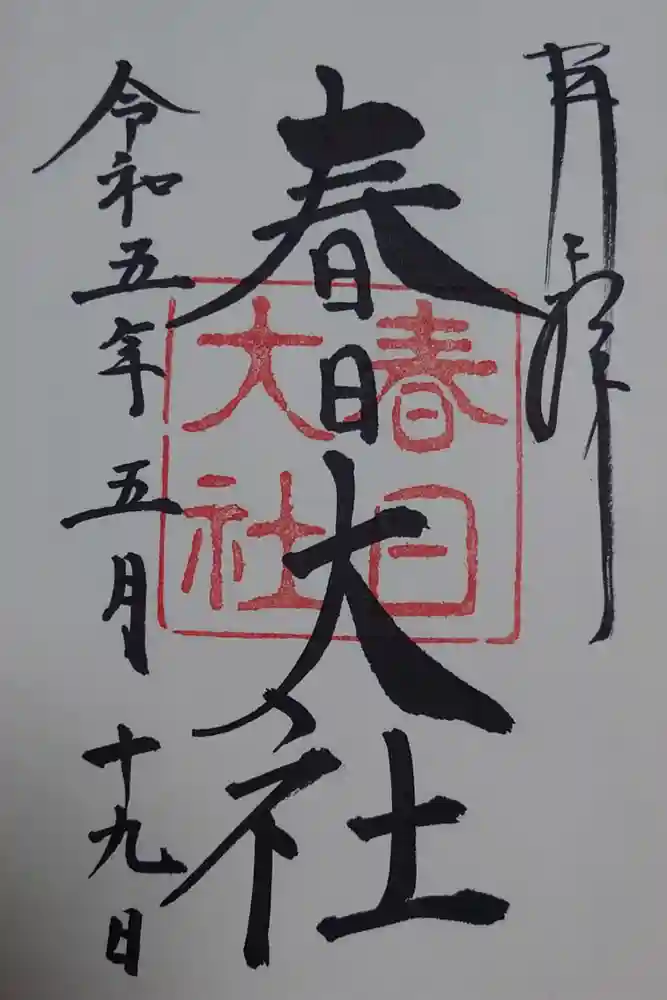 奉拝
春日大社
春日
大社
令和五年五月十九日